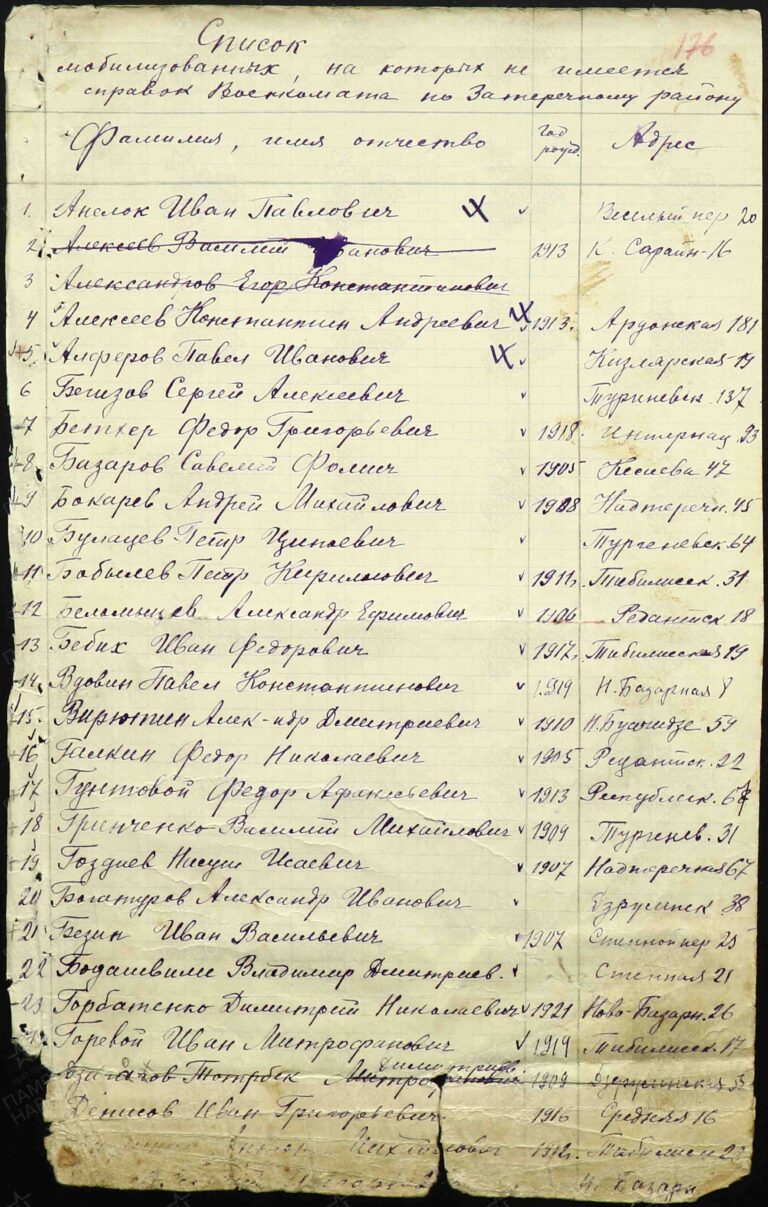 176
Список
мобилизованных, на которых не имеется
справок Военкомата по Затеречному району
Фамилия, имя отчество год рожд. Адрес
1. Анелок Иван Павлович Веселый пер 20
2. Алексеев Василий 1913 К. Сараджи-16
3 Александров Егор Константинович
4 Алексеев Константин Андреевич 1913. Ардонская 181
5. Алферов Павел Иванович Кизлярская 19
6 Бегизов Сергей Алексеевич Тургеневск. 137
7 Бетхер Федор Григорьевич 1918. Интернац. 93
8. Базаров Савелий Фомич 1905 Кесаева 47
9 Бокарев Андрей Михайлович 1908 Надтеречн. 45
10 Булацев Петр Тургеневск. 64
11 Бобылев Петр Кирилович 1911. Тибилисск. 31
12 Александр Ефимович 1906 Редантск 18
13 Бебих Иван Федорович 1917. Тибилисская 19
14. Вдовин Павел Константинович 1919 Н. Базарная 8
15. Вирютин Алек-ндр Дмитриевич 1910 Н. Буачидзе 59
16 Галкин Федор Николаевич 1905 Редантск. 22
17 Гунтовой Федор 1913 Республик.
18 Гринченко Василий Михайлович 1909 Тургенев. 31
19 Гоздиев Исаевич 1907 Надтеречная 67
20 Богатуров Александр Иванович 38
21 Безин Иван Васильевич 1907 Степной пер 25
22 Бодашвили Владимир Дмитриев. Степная 21
23 Горбатенко Димитрий Николаевич 1921 Ново-Базарн. 26
Горевой Иван Митрофанович 1919 Тибилисск. 17
Тотрбек 1909 Дзержинская
Денисов Иван Григорьевич 1916 Средняя 16
Антон 1912. Тибилиси
Н. Базарн